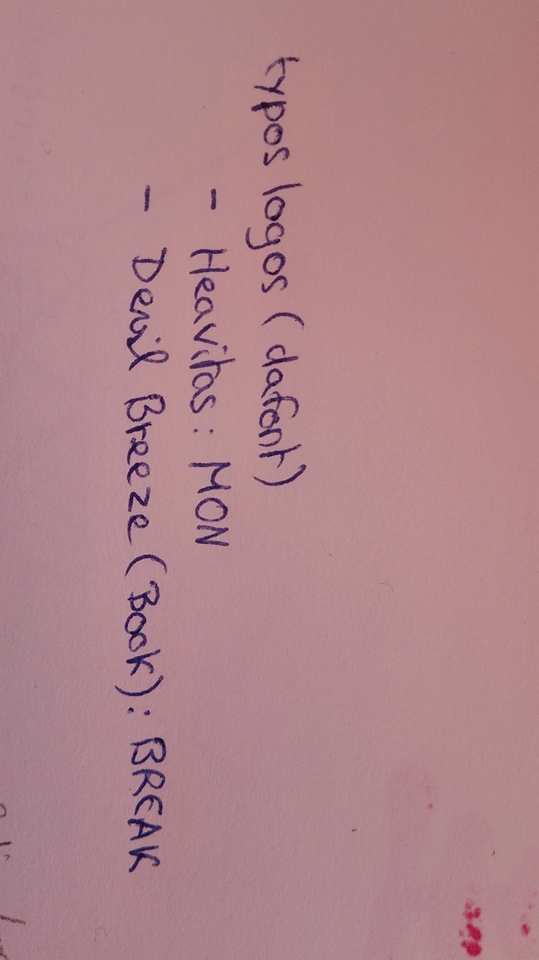 typos logos (dafont)
- Heavitas : MON
- Devil Breeze (Book) : BREAK